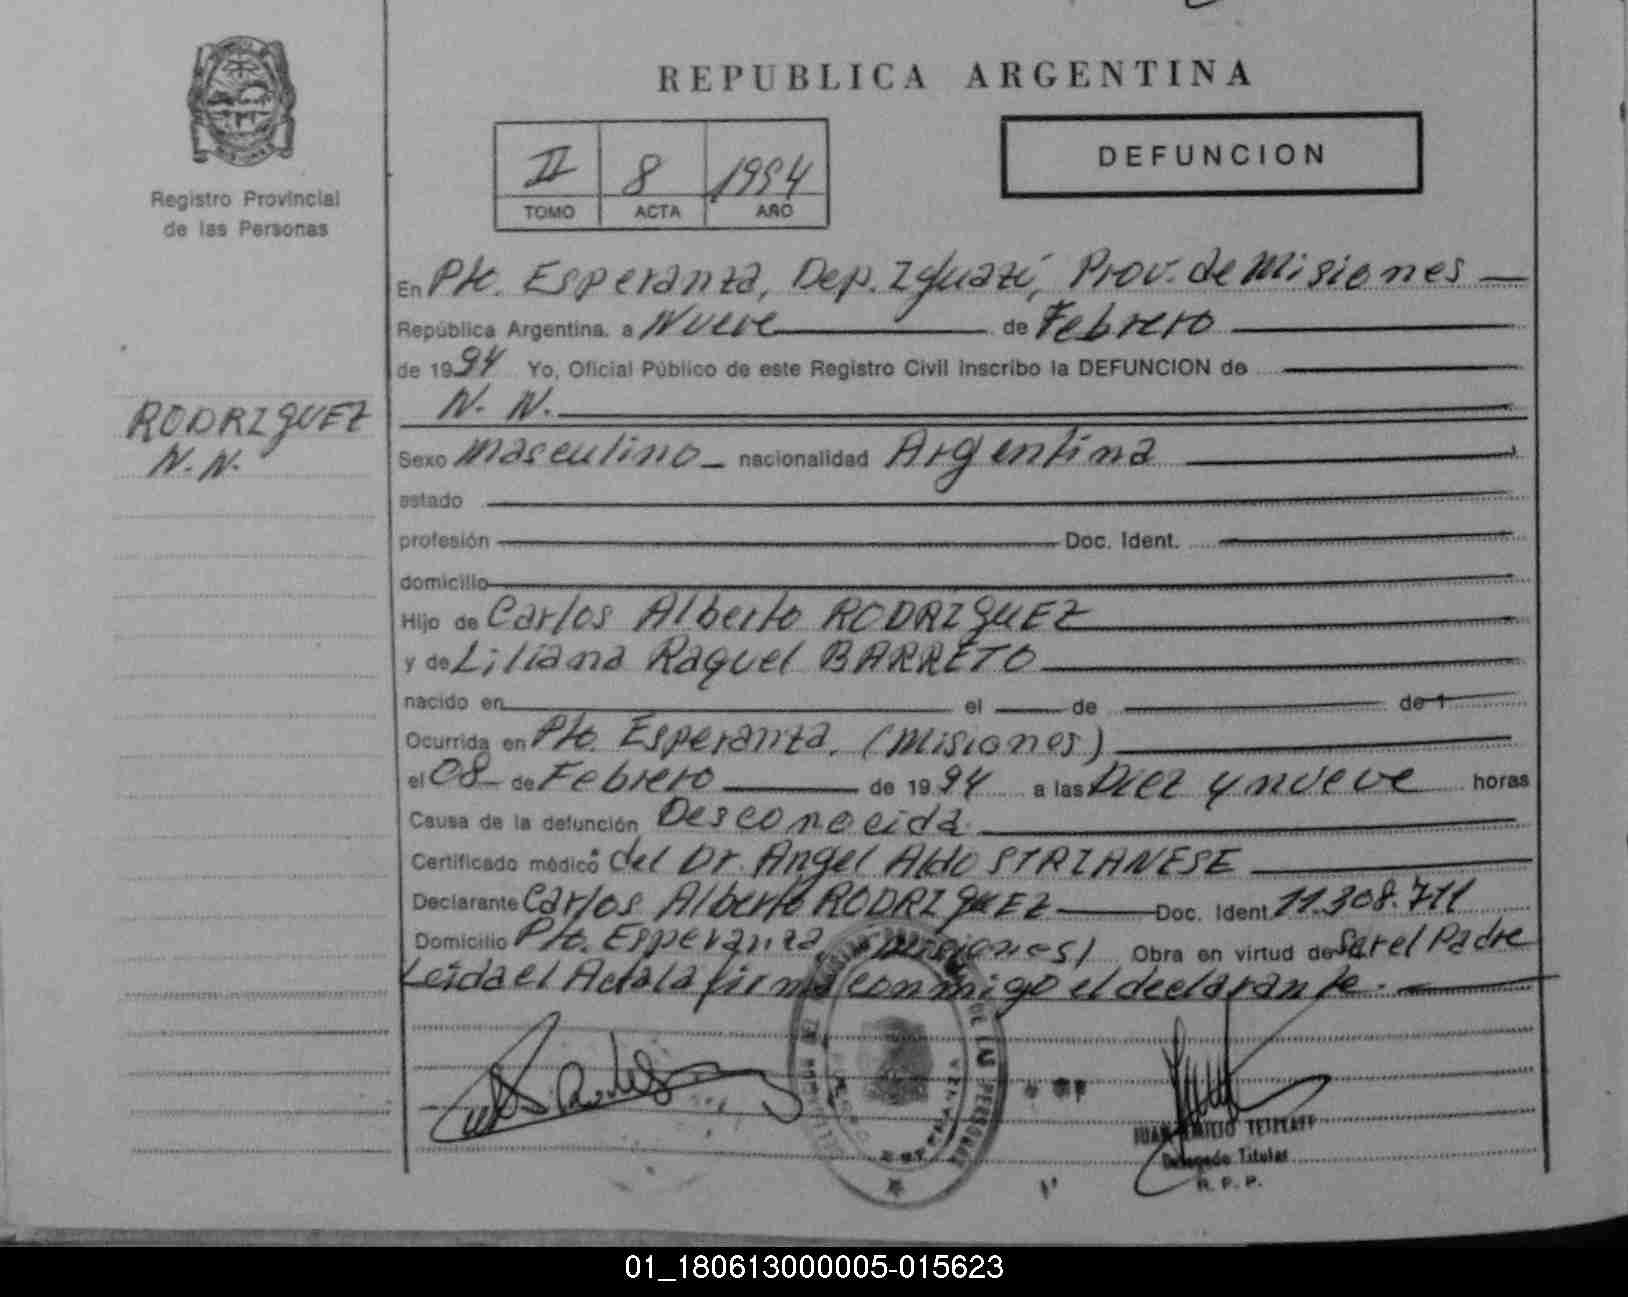 REPUBLICA ARGENTINA
Registro Provincial
de las Personas
II 8 1994
TOMO ACTA AÑO
DEFUNCION
RODRIGUEZ
N. N.
En Pto. Esperanza, Dep. Iguazú, Prov. de Misiones
República Argentina. a Nueve de Febrero
de 1994 Yo, Oficial Público de este Registro Civil Inscribo la DEFUNCION de
N. N.
Sexo Masculino nacionalidad Argentina
estado
profesión Doc. Ident.
domicilio
Hijo de Carlos Alberto RODRIGUEZ
y de Liliana Raquel BARRETO
nacido en el de de 1
Ocurrida en Pto. Esperanza, (Misiones)
el 08 de Febrero de 1994 a las Diez y nueve horas
Causa de la defunción Desconocida
Certificado médico del Dr. Angel Aldo STRIANESE
Declarante Carlos Alberto RODRIGUEZ Doc. Ident 11.308.711
Domicilio Pto. Esperanza (Misiones) Obra en virtud de Ser el Padre
Leida el Acta la firma conmigo el declarante.
JUAN EMILIO
Delegado Titular
R. P. P.
01_180613000005-015623